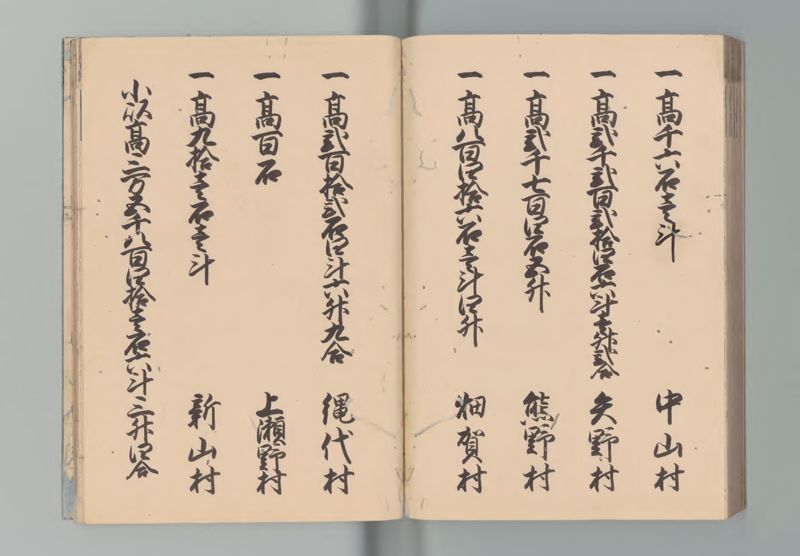 一 高千六石壱斗 中山村
一 高弐千弐百弐拾四石六斗壱升弐合 矢野村
一 高弐千七百四石五升 熊野村
一 高八百四拾六石壱斗四升 畑賀村
一 高弐百拾弐石四斗六升九合 縄代村
一 高百石 上瀬野村
一 高九拾壱石壱斗 新山村
小以高三万五千八百四拾壱石六斗三升四合